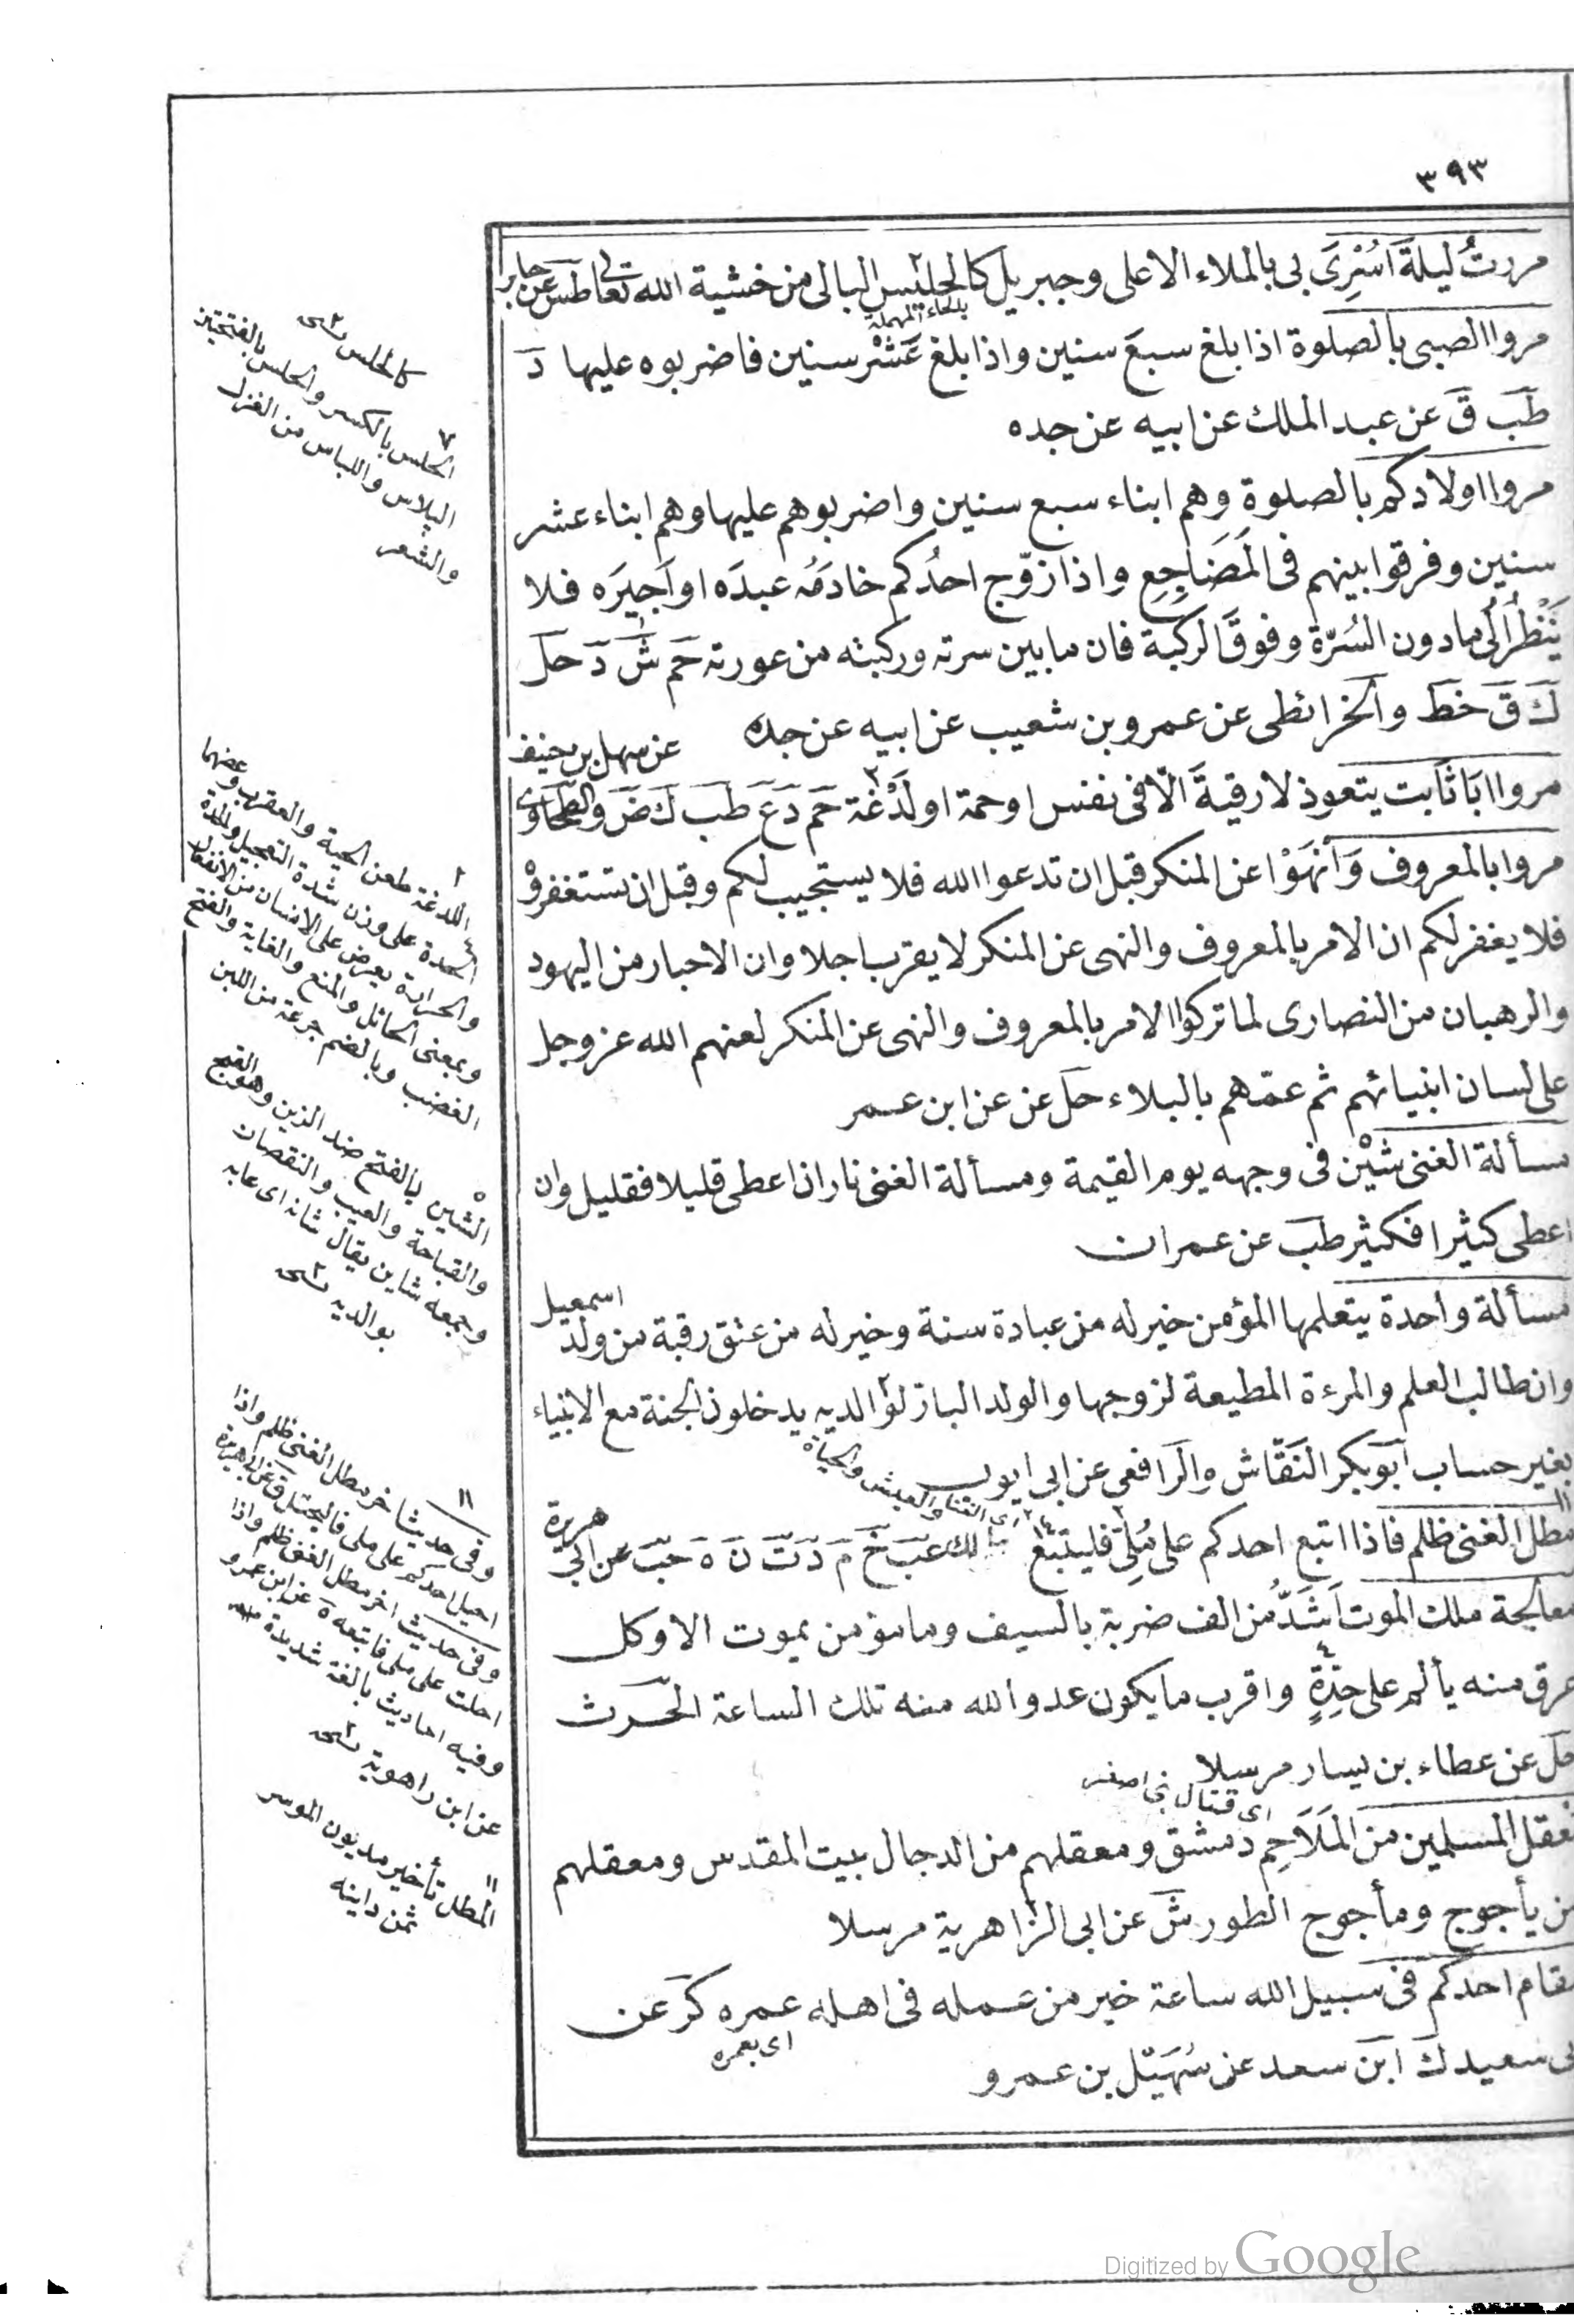 ٣٩٣
مررتُ ليلةَ اُسْرِىَ بى بالملاء الاعلى وجبريل كالحليس البالى من خشية الله تعالى طس عن جابر
بالحاء المهملة
مروا الصبى بالصلوة اذا بلغ سبعَ سنين واذا بلغ عَشْر سنين فاضربوه عليها دَ
طَب قَ عن عبد الملك عن ابيه عن جده
مروا اولادكم بالصلوة وهم ابناء سبع سنين واضربوهم عليها وهم ابناء عشر
سنين وفرقوا بينهم فى المَضَاجِعِ واذا زوّج احدُكم خادمَه عبدَه او اَجِيرَه فلا
يَنْظُر اِلى مادون السُرّة وفوقَ الركبة فان مابين سرته وركبته من عورته حَم شَ دَ حلَ
كَ قَ خطَ والخرائطى عن عمرو بن شعيب عن ابيه عن جده
عن سهل بن حنيف
مروا ابَا ثابت يتعوذ لا رقيةَ الّا فى نفس او حمة او لَدْغة حَم دَ عَ طَب كَ ضَ والطحاوى
مروا بالمعروف وَاَنْهَوْا عن المنكر قبل ان تدعوا الله فلا يستجيب لكم وقبل ان تستغفروْ
فلا يغفر لكم ان الامر بالمعروف والنهى عن المنكر لا يقرب اجلا وان الاحبار من اليهود
والرهبان من النصارى لما تركوا الامر بالمعروف والنهى عن المنكر لعنهم الله عز وجل
على لسان انبيائهم ثم عمّهم بالبلاء حلَ عن عن ابن عمر
مسألة الغنى شَيْن فى وجهه يوم القيمة ومسألة الغنى نار ان اعطى قليلا فقليل وان
اعطى كثيرا فكثير طبَ عن عمران
اسمعيل
مسألة واحدة يتعلمها المؤمن خير له من عبادة سنة وخير له من عتق رقبة من ولد
وان طالب العلم والمرءة المطيعة لزوجها والولد البار لوالديه يدخلون الجنة مع الانبياء
بغير حساب ابَو بكر النَقّاش والرَافعى عن ابى ايوب
اى الغنا والعيش والحياة
مطل الغنى ظلم فاذا اتبع احدكم على مُلِئ فليتبعْ مالك عَبَ خَ مَ دَ تَ نَ هَ حَبّ عن ابى هريرة
معالجة ملك الموت اَشَدُّ من الف ضربة بالسيف وما مؤمن يموت الا وكل
عرق منه يألم على حِدَةٍ واقرب ما يكون عدو الله منه تلك الساعة الحَرث
حلَ عن عطاء بن يسار مرسلا
اى قتال بنى اصفر
معقل المسلمين من المَلَاحِمِ دمشق ومعقلهم من الدجال بيت المقدس ومعقلهم
من يأجوج ومأجوج الطور شَ عن ابى الزاهرية مرسلا
مقام احدكم فى سبيل الله ساعة خير من عمله فى اهله عمره كَرَ عن
اى بعمره
ابى سعيد كَ ابن سعد عن سُهَيل بن عمرو
كالحلس نسخه
الحلس بالكسر والحلس بالفتحتين
البلاس واللباس من الغزل
والشعر
اللدغة طعن الحية والعقرب وعضهما
الحدة على وزن شدة التعجيل والحدة
والحرارة يعرض على الانسان من الانفعال
وبمعنى الحائل والمنع والغاية والفتح
الغضب وبالضم جرعة من اللبن
الشين بالفتح ضد الزين وهو القبح
والقباحة والعيب والنقصان
وجمعه شاين يقال شانه اى عابه
بوالديه نسخه
وفى حديث اخر مطل الغنى ظلم واذا
احيل احدكم على ملى فاليحتل ق عن ابى هريرة
وفى حديث اخر مطل الغنى ظلم واذا
احلت على ملى فاتبعه ه عن ابن عمرو
وفيه احاديث بالغة شديدة
عن ابن راهوية نسخه
المطل تأخير مديون الموسر
ثمن داينه
Digitized by Google